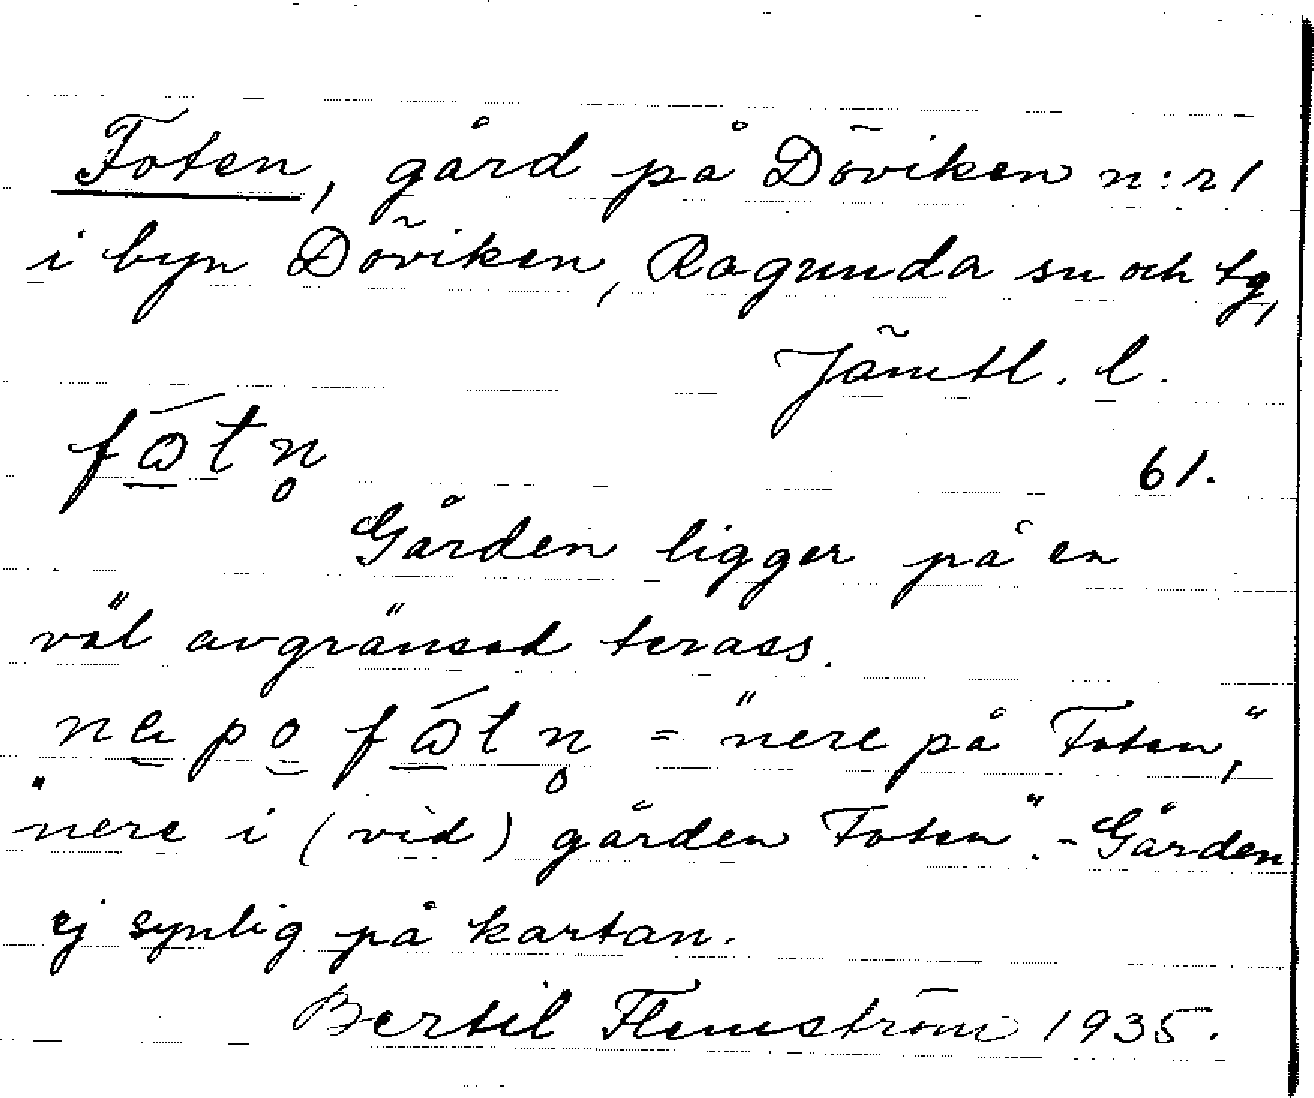 Foten, gård på Döviken n:r 1
i byn Döviken, Ragunda sn och tg,
Jämtl. l.
fɷ́tn̥
61.
Gården ligger på en
väl avgränsad terass.
na po fɷ́tn̥ = "nere på Foten",
"nere i (vid) gården Foten". - Gården
ej synlig på kartan.
Bertil Flemström 1935.